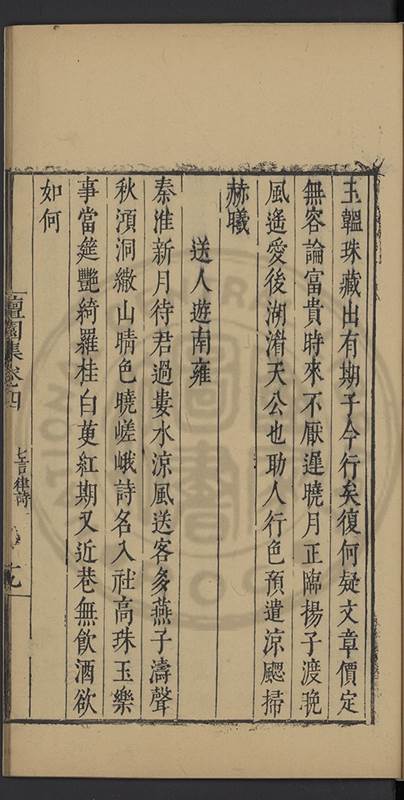 玉韞珠藏出有期子今行矣復何疑文章價定
無容論富貴時來不厭遲曉月正臨揚子渡晚
風遙愛後湖湄天公也助人行色預遣涼颸掃
赫曦
送人遊南雍
秦淮新月待君過婁水涼風送客多燕子濤聲
秋澒洞繖山晴色曉嵯峨詩名入社高珠玉樂
事當筵艷綺羅桂白萸紅期又近巷無飲酒欲
如何
集卷四
七言律詩
九